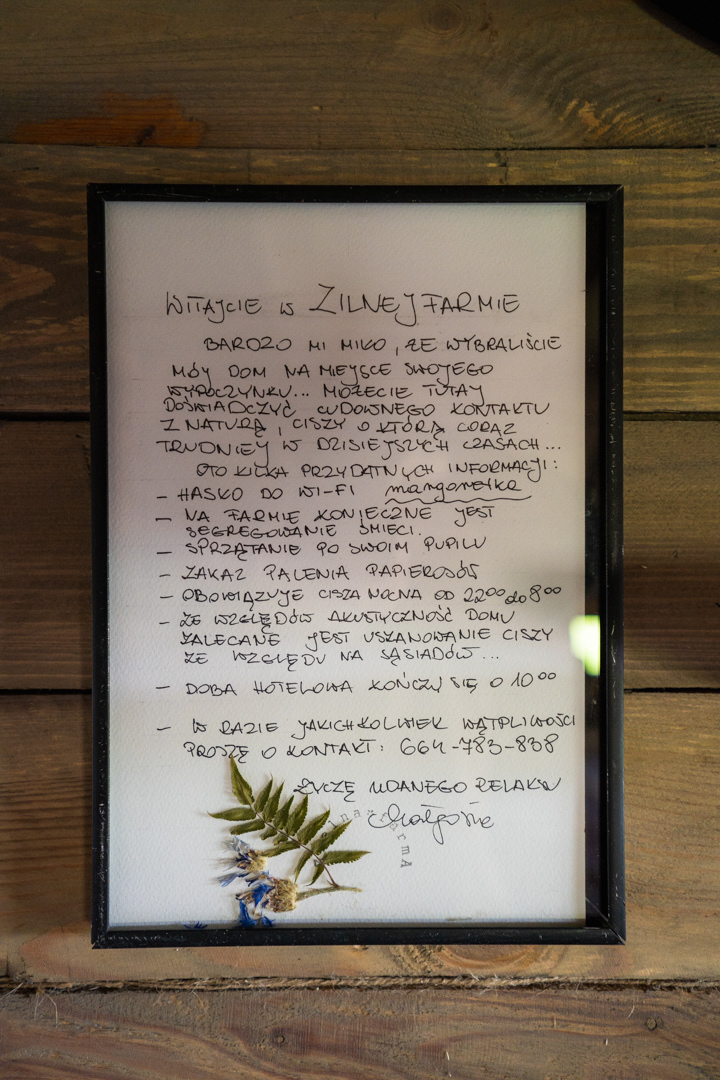 WITAJCIE W ZILNEJ FARMIE
BARDZO MI MIŁO, ŻE WYBRALIŚCIE
MÓJ DOM NA MIEJSCE SWOJEGO
WYPOCZYNKU... MOŻECIE TUTAJ
DOŚWIADCZYĆ CUDOWNEGO KONTAKTU
Z NATURĄ, CISZY O KTÓRĄ CORAZ
TRUDNIEJ W DZISIEJSZYCH CZASACH...
OTO KILKA PRZYDATNYCH INFORMACJI:
- HASŁO DO WI-FI
- NA FARMIE KONIECZNE JEST
SEGREGOWANIE ŚMIECI.
- SPRZĄTANIE PO SWOIM PUPILU
- ZAKAZ PALENIA PAPIEROSÓW
- OBOWIĄZUJE CISZA NOCNA OD 22 00 do 8 00
- ZE WZGLĘDÓW AKUSTYCZNOŚĆ DOMU
ZALECANE JEST USZANOWANIE CISZY
ZE WZGLĘDU NA SĄSIADÓW...
- DOBA HOTELOWA KOŃCZY SIĘ O 10 00
- W RAZIE JAKICHKOLWIEK WĄTPLIWOŚCI
PROSZĘ O KONTAKT: 664-783-838
ŻYCZĘ UDANEGO RELAKSU
Małgosia